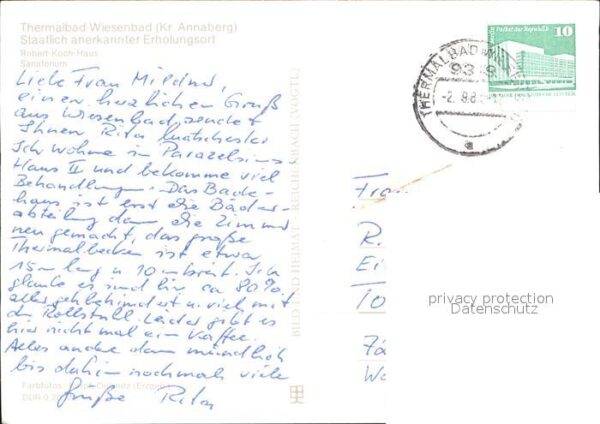 Thermalbad Wiesenbad (Kr. Annaberg)
Staatlich anerkannter Erholungsort
Robert-Koch-Haus
Sanatorium
Liebe Frau
einen herzlichen Gruß
aus Wiesenbad sendet
Ihnen Rita
Ich wohne im Parazelsius
Haus II und bekomme viel
Behandlungen. Das Bade-
haus ist erst die Bäder-
abteilung dann die Zimmer
neu gemacht, das große
Thermalbecken ist etwa
15 m lang u 10 m breit. Ich
glaube es sind hier ca 80%
alles gehbehindert u. viel mit
den Rollstuhl. Leider gibt es
hier nicht mal ein Kaffee.
Alles andere dann mündlich
bis dahin nochmals viele
Grüße Rita
Farbfotos:
DDR
BILD UND HEIMAT REICHENBACH (VOGTL)
THERMALBAD
93
-2. 9.8
a
Berlin, Palast der Republik
10
Frau
R.
Ei
privacy protection
Datenschutz